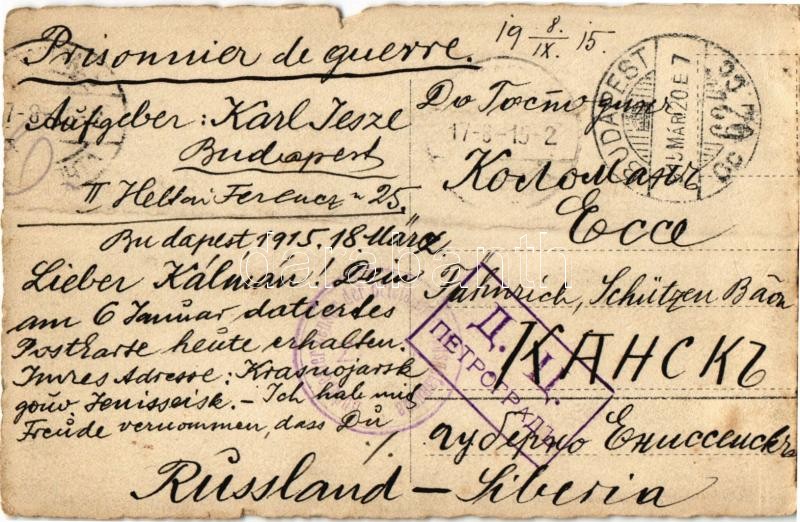 Prisonnier de guerre.
19 8./IX. 15.
Aufgeber: Karl Jesze
Budapest
II Heltai Ferencz u 25.
Budapest 1915. 18. März.
Lieber Kálmán! Dein
am 6 Januar datiertes
Postkarte heute erhalten.
Imres Adresse: Krasnojarsk
gouv. Jenisseisk. – Ich hab mit
Freude vernommen, dass Du
./.
До Господин
Коломанъ
Ессе
Fähnrich, Schützen Baon
КАНСКЪ
губерно Ениссейскъ
Russland – Siberia
BUDAPEST
915 MÁR 20 E 7
17-8-15-2
Д. Ц.
ПЕТРОГРАДЪ
darabanth